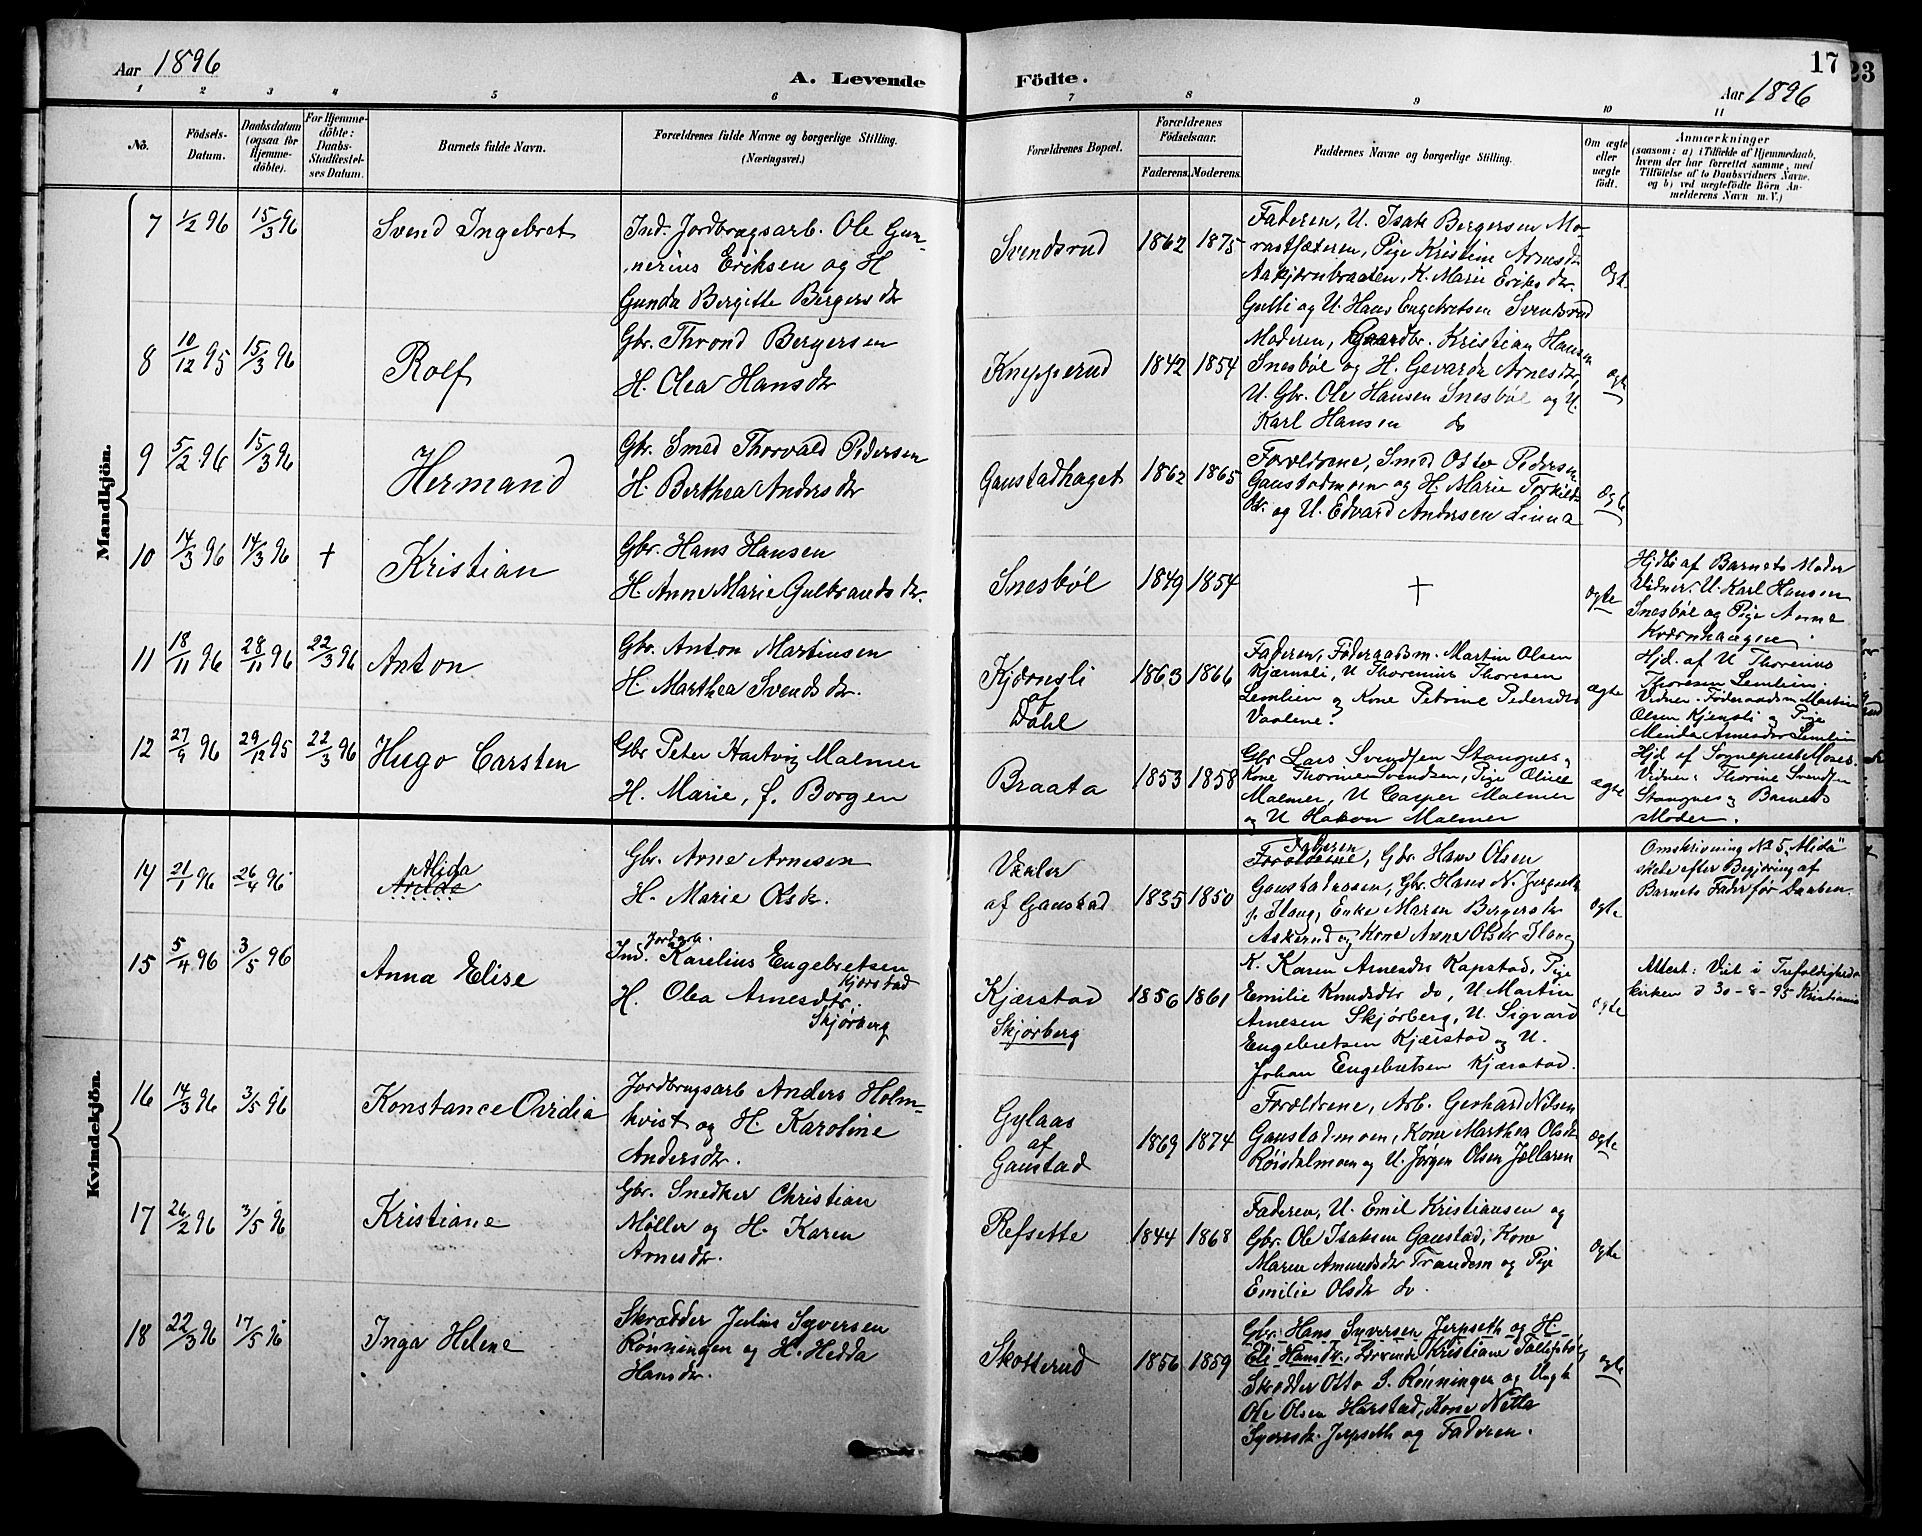 Aar 1896
A. Levende
Födte.
17
23
Aar 1896
1 2 3 4 5 6 7 8 9 10 11
No.
Födsels-
Datum.
Daabsdatum
(ogsaa för
Hjemme-
döbte).
For Hjemme-
döbte:
Daabs-
Stadfæstel-
ses Datum.
Barnets fulde Navn.
Forældrenes fulde Navne og borgerlige Stilling.
(Næringsvei.)
Forældrenes Bopæl.
Forældrenes
Födselsaar.
Faderens. Moderens.
Faddernes Navne og borgerlige Stilling.
Om ægte
eller
uægte
födt.
Anmærkninger
(saasom: a) i Tilfælde af Hjemmedaab,
hvem der har forrettet samme, med
Tilföielse af to Daabsvidners Navne.
og b) ved uægtefödte Börn An-
melderens Navn m. V.)
Mandkjön.
7 1/2 96 15/3 96
Svend Ingebret
Ind. Jordbrugsarb. Ole Gun-
nerius Eriksen og H
Gunda Bergitte Bergersdtr
Svendsrud
1862 1875
Faderen, U. Isak Bergersen Mo-
rastsæteren, Pige Kristine Arnesdtr
K. Marie Eriksdtr.
Gulli og U. Hans Engebretsen Svendsrud
ægt.
8 10/12 95 15/3 96
Rolf
Gbr. Thrond Bergersen
H. Olea Hansdtr
Knepperud
1842 1854
Moderen, Gaardbr. Kristian Hansen
Snesbøl og H. Gevarda Arnesdtr,
U. Gbr. Ole Hansen Snesbøl og U.
Karl Hansen do
ægte
9 5/2 96 15/3 96
Hermand
Gbr. Smed Thorvald Pedersen
H. Berthea Andersdtr
Gaustadhaget
1862 1865
Forældrene, Smed Otto Pedersen
Gaustadmoen og H. Marie Torkilds
dtr. og U. Edvard Andersen Linna
ægte
10 14/3 96 14/3 96 +
Kristian
Gbr. Hans Hansen
H. Anne Marie Gulbrandsdtr.
Snesbøl
1849 1854
+
ægte
Hjdbt af Barnets Moder
Vidner. U. Karl Hansen
Snesbøl og Pige Anne
Kværnhaugen.
11 18/11 96 28/11 96 22/3 96
Anton
Gbr. Anton Martinsen
H. Marthea Svendsdtr.
Kjærnsli
af
Dahl
1863 1866
Faderen, Føderaadsm. Martin Olsen
Kjærnsli, U Thorenius Thoresen
Lemlien og Kone Petrine Pedersdtr
Vaalene.
ægte
Hjd. af U Thorenius
Thoresen Lemlien.
Vidner. Føderaadsm Martin
Olsen Kjernsli og Pige
Minda Arnesdtr Lemlien
12 27/9 96 29/12 95 22/3 96
Hugo Carsten
Gbr Peter Hartvig Malmer
H. Marie, f. Borgen
Braata
1853 1858
Gbr Lars Svendsen Stangnes,
Kone Thorine Svendsen, Pige Olive
Malmer, U Casper Malmer
og U Hakon Malmer
ægte
Hjd af Sogneprest Moses.
Vidner: Thorine Svendsen
Stangnes og Barnets
Moder.
Kvindekjön.
14 21/1 96 26/4 96
Alida
Arilda
Gbr. Arne Arnesen
H. Marie Olsdtr.
Vaaler
af Gaustad
1835 1850
Faderen
Forældrene, Gbr. Hans Olsen
Gaustadaasen, Gbr. Hans N. Jerpseth
p. Haug, Enke Maren Bergersdtr
Askerud og Kone Anne Olsdtr Haug
ægte
Omskrivning No 5 "Alida"
skede efter Begjæring af
Barnets Fader før Daaben.
15 5/4 96 3/5 96
Anna Elise
Jordarb.
Ind. Karelius Engebretsen
Kjærstad
H. Olea Arnesdtr.
Skjørberg
Kjærstad
Skjørberg
1856 1861
K. Karen Arnesdtr Kapstad, Pige
Emilie Knudsdtr do, U. Martin
Arnesen Skjørberg, U. Sigvard
Engebretsen Kjærstad og U.
Johan Engebretsen Kjærstad.
ægte
Attest: Viet i Trefoldigheds
kirken d 30-8-95 Kristiania
16 14/3 96 3/5 96
Konstance Ovidia
Jordbrugsarb Anders Holm-
kvist og H. Karoline
Andersdtr.
Gylaas
af
Gaustad
1869 1874
Forældrene, Arb. Gerhard Nilsen
Gaustadmoen, Kone Marthea Olsdtr
Røisdalmoen og U. Jørgen Olsen Jellaren
ægte
17 26/2 96 3/5 96
Kristiane
Gbr. Snedker Christian
Møller og H. Karen
Arnesdtr.
Refsette
1844 1868
Faderen, U. Emil Kristiansen og
Gbr. Ole Isaksen Gaustad, Kone
Maren Amundsdtr Trandem og Pige
Emilie Olsdtr do.
ægte
18 22/3 96 17/5 96
Inga Helene
Skrædder Julius Syversen
Rønningen og H. Hedda
Hansdtr.
Skotterud
1856 1859
Gbr. Hans Syversen Jerpseth og H.
Eli Hansdtr, Kristiane
Skrædder Otto S. Rønningen og Ungk
Ole Olsen Harstad, Kone Netta
Syversdtr. Jerpseth og Faderen.
ægte